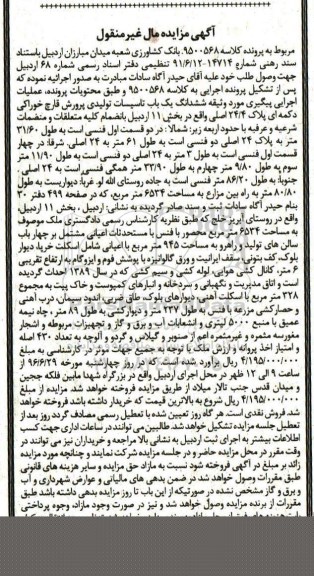 آگهی مزایده مال غیرمنقول
مربوط به پرونده کلاسه ۹۵۰۰۵۶۸، بانک کشاورزی شعبه میدان مبارزان اردبیل باستناد
سند رهنی شماره ۱۴۷۱۴-۹۱/۶/۱۲ تنظیمی دفتر اسناد رسمی شماره ۶۸ اردبیل
جهت وصول طلب خود علیه آقای حیدر آگاه سادات مبادرت به صدور اجرائیه نموده که
پس از تشکیل پرونده اجرایی به کلاسه ۹۵۰۰۵۶۸ و طبق محتویات پرونده، عملیات
اجرایی پیگیری مورد وثیقه ششدانگ یک باب تاسیسات تولیدی پرورش قارچ خوراکی
دکمه ای پلاک ۲۴/۴ اصلی واقع در بخش ۱۱ اردبیل بانضمام کلیه متعلقات و منضمات
شرعیه و عرفیه با حدود اربعه زیر: شمالا: در دو قسمت اول فنسی است به طول ۳۱/۶۰
متر به پلاک ۲۴ اصلی دو فنسی است به طول ۶۱ متر به ۲۴ اصلی. شرقا: در چهار
قسمت اول فنسی است به طول ۳ متر به ۲۴ اصلی دو فنسی است به طول ۱۱/۹۰ متر
سوم به طول ۹/۸۰ متر چهارم به طول ۳۳/۹۰ متر همگی فنسی است به ۲۴ اصلی.
جنوبا: به طول ۸۶/۲۰ متر فنسی است به جاده روستای الله لو. غربا: دیواریست به طول
۸۰/۸۰ متر به راه بین مزارع به مساحت ۶۵۳۴ متر مربع، که در صفحه ۴۹۹ دفتر ۳۰
بنام حیدر آگاه سادات ثبت و سند صادر گردیده به نشانی: اردبیل، بخش ۱۱ اردبیل،
واقع در روستای ایزج خلج که طبق نظریه کارشناس رسمی دادگستری ملک موصوف
به مساحت ۶۵۳۴ متر مربع محصور با فنس با مستحدثات اعیانی مشتمل بر چهار باب
سالن های تولید و راهرو به مساحت ۹۴۵ متر مربع با اعیانی شامل اسکلت خرپا، دیوار
بلوک، کف بتونی، سقف ایرانیت و ورق گالوانیزه با پوشش فوم و ایزوگام به ارتفاع تقریبی
۶ متر، کانال کشی هوایی، لوله کشی و سیم کشی که در سال ۱۳۸۹ احداث گردیده
است و اتاق مدیریت و نگهبانی و سردخانه و انبارهای کمپوست و خاک پیت به مجموع
۳۲۸ متر مربع با اسکلت آهنی، دیوارهای بلوک، طاق ضربی، اندود سیمان، درب آهنی
و حصارکشی مزرعه با فنس به طول ۲۳۷ متر و دیوارکشی به طول ۸۹ متر، چاه نیمه
عمیق با منبع ۵۰۰۰ لیتری و انشعابات آب و برق و گاز و تجهیزات مربوطه و اشجار
مغروسه مثمره و غیرمثمره اعم از صنوبر و گیلاس و گردو و آلوچه به تعداد ۴۳۰ اصله
و امتیاز اخذ پروانه و ارزش ملک با توجه به جمیع جهات موثر در کارشناسی به مبلغ
۴/۱۹۵/۰۰۰/۰۰۰ ریال برآورد شده است که در روز چهارشنبه مورخه ۹۶/۶/۲۹ از
ساعت ۹ الی ۱۲ ظهر در محل اجرای اردبیل واقع در بزرگراه شهدا مابین فلکه ججین
و میدان قدس جنب تالار میلاد از طریق مزایده فروخته خواهد شد. مزایده از مبلغ
۴/۱۹۵/۰۰۰/۰۰۰ ریال شروع به بالاترین قیمت که خریدار داشته باشد فروخته خواهد
شد. فروش نقدی است. هر گاه روز تعیین شده با تعطیل رسمی مصادف گردد روز بعد از
تعطیل جلسه مزایده تشکیل خواهد شد. طالبین می توانند در ساعات اداری جهت کسب
اطلاعات بیشتر به اجرای ثبت اردبیل به نشانی بالا مراجعه و خریداران نیز می توانند در
وقت مقرر در محل مزایده حاضر و در جلسه مزایده شرکت نمایند و چنانچه مورد مزایده
زائد بر مبلغ در آگهی فروخته شود نسبت به مازاد حق مزایده و سایر هزینه های قانونی
طبق مقررات وصول خواهد شد در ضمن بدهی های مالیاتی و عوارض شهرداری و آب
و برق و گاز مشخص نشده در صورتیکه از این باب تا روز مزایده بدهی داشته باشد طبق
مقررات از برنده مزایده وصول خواهد شد و نیز در صورت وجود مازاد، وجوه پرداختی